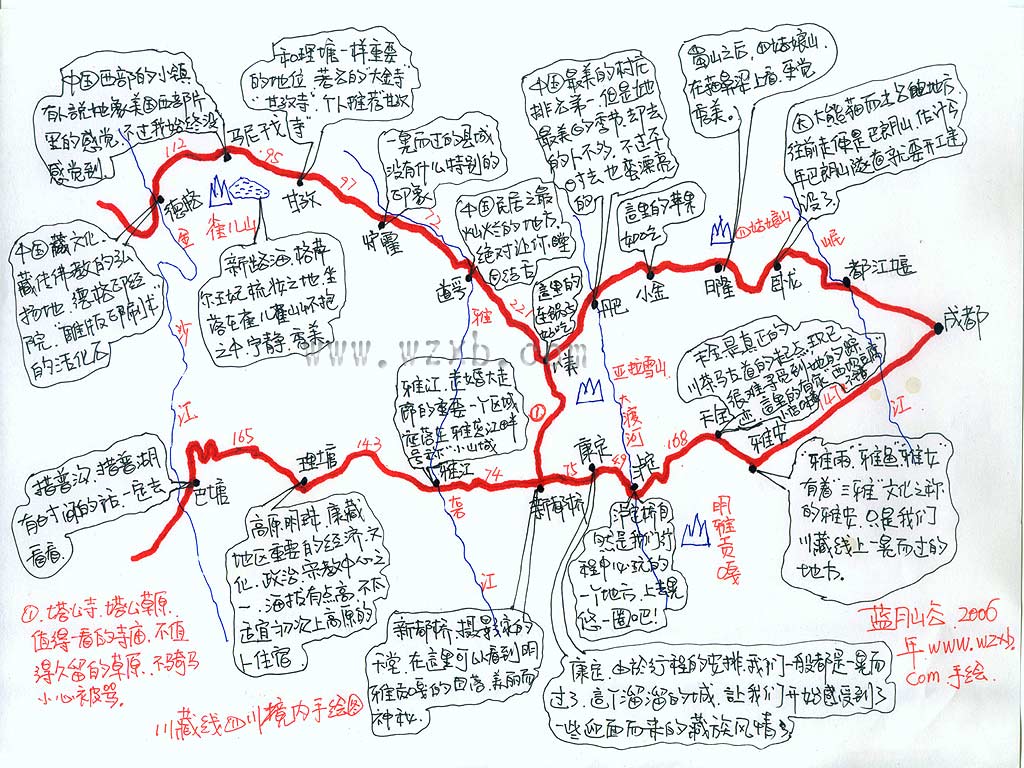 中国西部的小镇
有人说她像美国西部片
里的感觉.不过我始终没
感觉到.
和理塘一样重要
的地位.著名的"大金寺
"甘孜寺".个人推荐"甘孜
寺"
一晃而过的县城
没有什么特别的
印象
中国最美的村庄
排名第一,但是她
最美的季节却去
的人不多,不过平
时去也蛮漂亮
的
蜀山之后,四姑娘山.
最美。
大熊猫而出名的地方.
往前走便是巴朗山,估计今
年巴朗山隧道就要开通
没了
中国民居之最
绝对让你瞠
目结舌
这里的苹果
好吃
这里的
好吃
中国藏文化.
藏传佛教的弘
扬地.德格印经
院."雕版印刷术"
的活化石
新路海.格萨
尔王妃梳妆之地.坐
落在雀儿山怀抱
之中.宁静.最美
112
马尼干戈
95
甘孜
97
炉霍
72
道孚
221
八美
德格
雀儿山
金
沙
江
雅
砻
江
丹巴
小金
日隆
四姑娘山
卧龙
都江堰
岷
江
成都
亚拉雪山
大
渡
河
www.wzxb.com
天全是真正的
川茶马古道的起点,现已
很难寻觅到她的踪
迹
天全
雅安
147
168
"雅雨、雅鱼、雅女"
有着"三雅"文化之称
的雅安.只是我们
川藏线上一晃而过的
地方.
雅江.走婚大走
廊的重要一个区域
座落在雅砻江畔
小山城
①
措普沟.措普湖
有时间的话一定去
看看.
巴塘
165
理塘
143
雅江
74
新都桥
75
康定
49
泸定
高原明珠.康藏
地区重要的经济.文
化.政治.宗教中心之
一.海拔有点高.不不
适宜初次上高原的
人住宿.
泸定桥自
然是我们行
程中必玩的
一个地方,上去晃
悠一圈吧!
明
雅
贡
嘎
新都桥.摄影家的
天堂.在这里可以看到明
雅贡嘎的日落.美丽而
神秘.
康定.由於行程的安排.我们一般都是一晃而
过了.这个溜溜的城.让我们开始感受到了
一些迎面而来的藏族风情了.
①.塔公寺.塔公草原.
值得一看的寺庙.不值
得久留的草原.不骑马
小心被骂.
川藏线四川境内手绘图
蓝月山谷.2006
年www.wzxb.
com手绘.